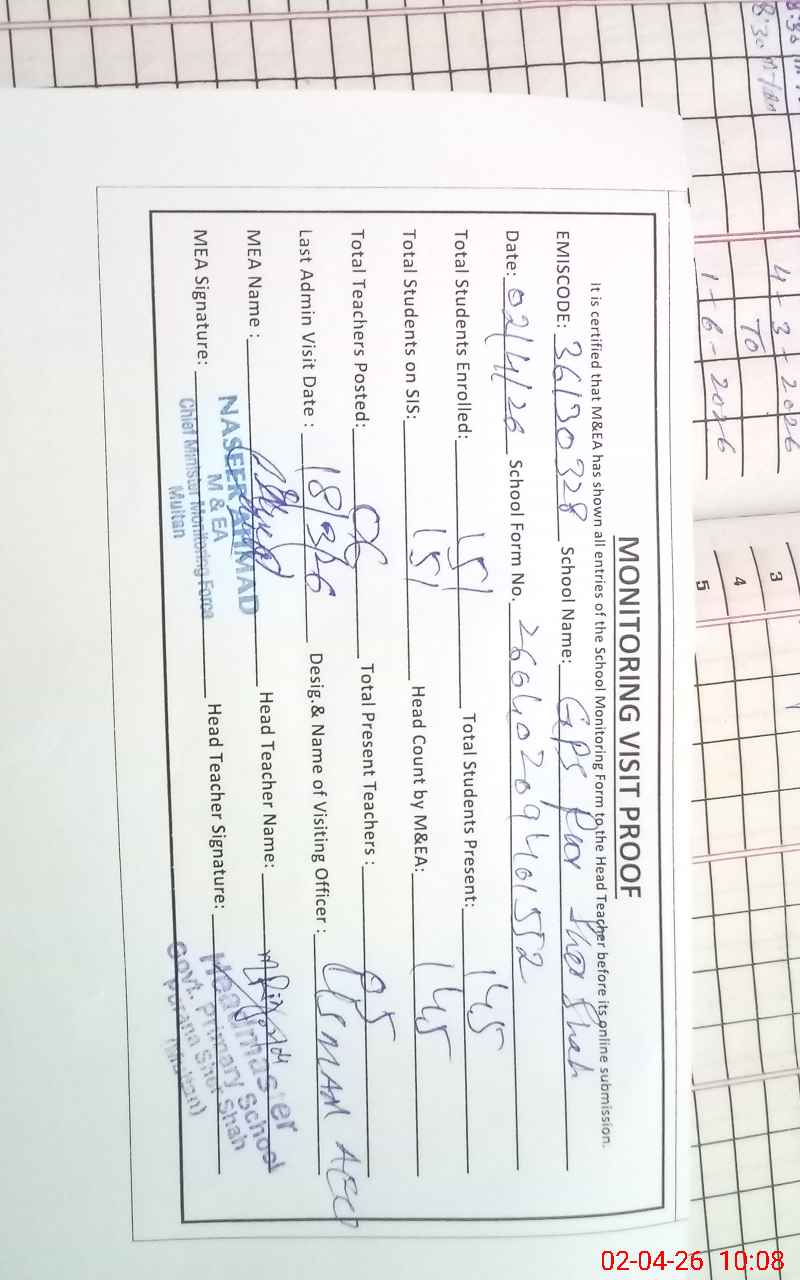 MONITORING VISIT PROOF
It is certified that M&EA has shown all entries of the School Monitoring Form to the Head Teacher before its online submission.
EMISCODE: 36130328 School Name: GPS Pur Sher Shah
Date: 02/4/26 School Form No. 26040209401552
Total Students Enrolled: 151 Total Students Present: 145
Total Students on SIS: 151 Head Count by M&EA: 145
Total Teachers Posted: 06 Total Present Teachers : 05
Last Admin Visit Date : 18/3/26 Desig.& Name of Visiting Officer : USMAN AEO
MEA Name : Head Teacher Name:
MEA Signature: Head Teacher Signature:
NASEER AHMAD
M & EA
Chief Minister Monitoring Force
Multan
Headmaster
Govt. Primary School
Purana Sher Shah
(Multan)
4-3-2026
TO
1-6-2026
3
4
5
02-04-26 10:08